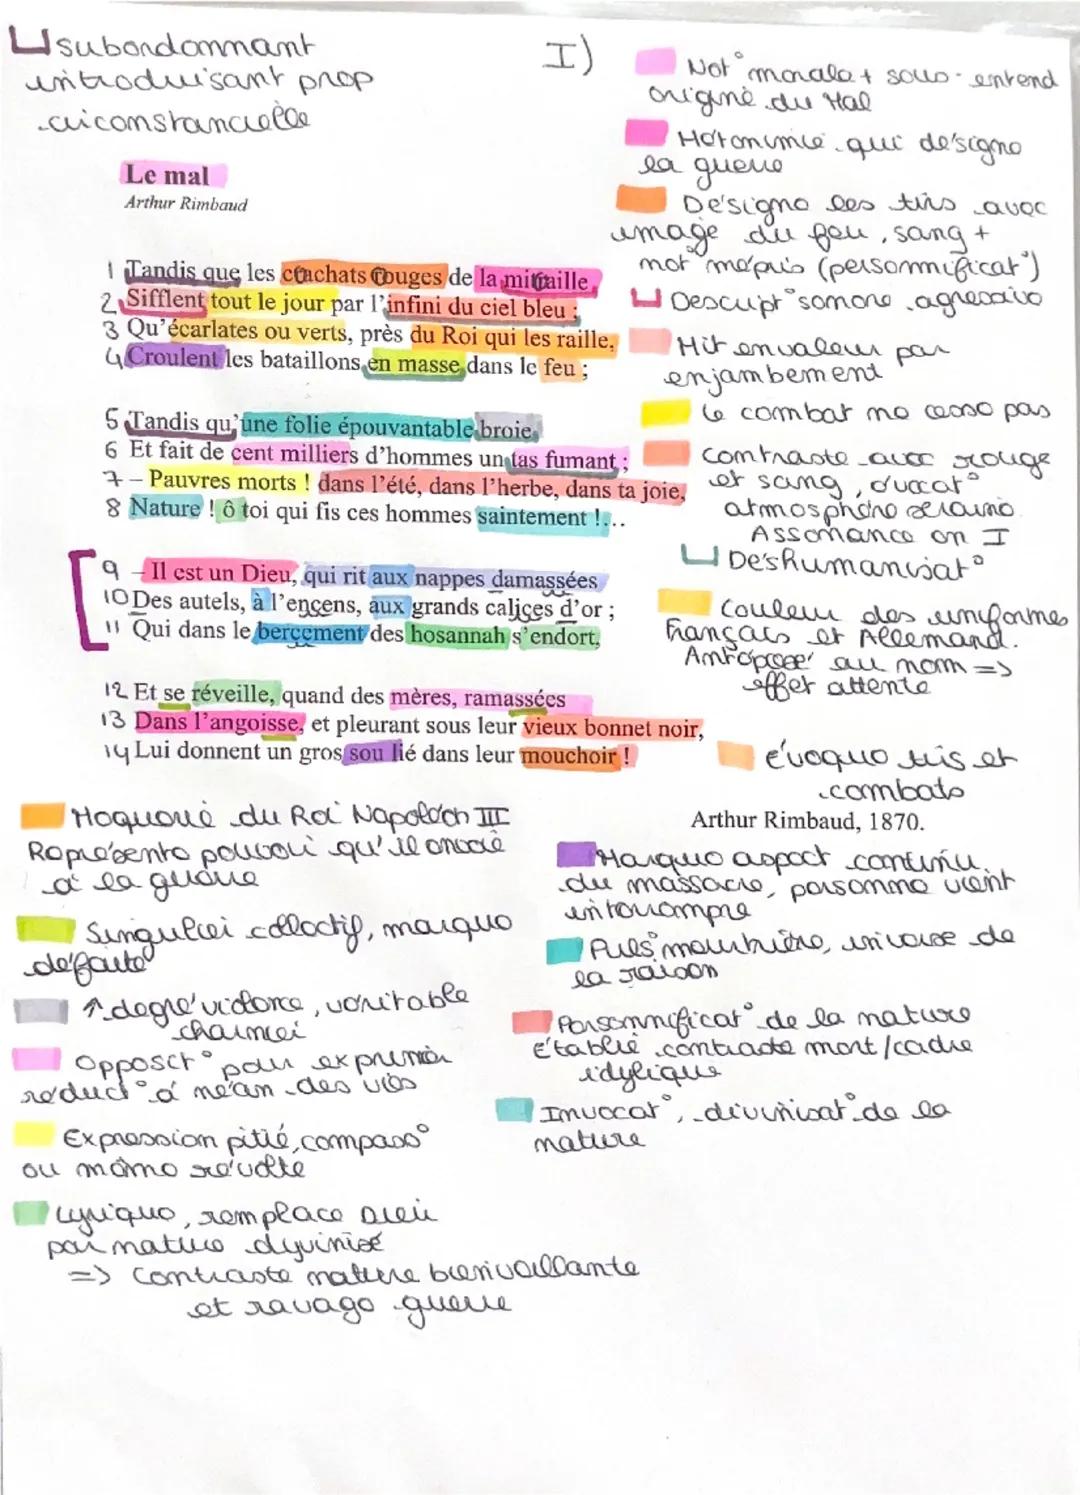 subordonnant
introduisant prop
circonstancielle
I)
Le mal
Arthur Rimbaud
1 Tandis que les crachats rouges de la mitraille
2 Sifflent tout le jour par l'infini du ciel bleu ;
3 Qu'écarlates ou verts, près du Roi qui les raille,
4 Croulent les bataillons en masse dans le feu ;
5 Tandis qu'une folie épouvantable broie
6 Et fait de cent milliers d'hommes un tas fumant ;
7 – Pauvres morts ! dans l'été, dans l'herbe, dans ta joie,
8 Nature ! ô toi qui fis ces hommes saintement !...
9 – Il est un Dieu, qui rit aux nappes damassées
10 Des autels, à l'encens, aux grands calices d'or ;
11 Qui dans le bercement des hosannah s'endort,
12 Et se réveille, quand des mères, ramassées
13 Dans l'angoisse, et pleurant sous leur vieux bonnet noir,
14 Lui donnent un gros sou lié dans leur mouchoir !
Arthur Rimbaud, 1870.
Not° morale + sous-entend
origine du Mal
Métonimie qui désigne
la guerre
Désigne les tirs avec
image du feu, sang +
mot mépris (personnificat°)
Descript° sonore agressive
Mit en valeur par
enjambement
le combat ne cesse pas
Contraste avec rouge
et sang, évocat°
atmosphère sereine
Assonance en I
Déshumanisat°
Couleur des uniformes
Français et Allemand.
Antéposé au nom =>
effet attente
évoque tirs et
combats
Moquerie du Roi Napoléon III
Représente pouvoir qu'il oncoie
à la guerre
Singulier collectif, marque
défaite
↑ degré violence, véritable
charnier
Opposit° pour exprimer
réduct° à néan des vies
Expression pitié, compass°
ou même révolte
Lyrique, remplace Dieu
par nature dyvinisé
=> Contraste nature bienveillante
et ravage guerre
Marque aspect continu
du massacre, personne vient
interrompre
Puls° meurtrière, inverse de
la raison
Personnificat° de la nature
établie contraste mort/cadre
idylique
Invocat°, divinisat° de la
nature